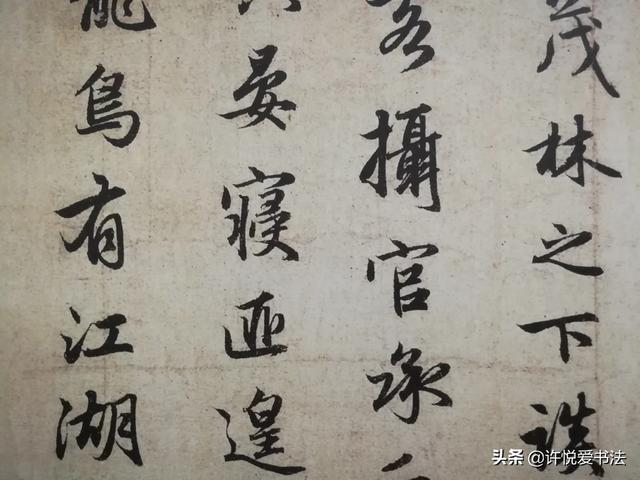 茂林之下談
客攝官承
晏寢匪遑
籠鳥有江湖
头条 @许悦爱书法